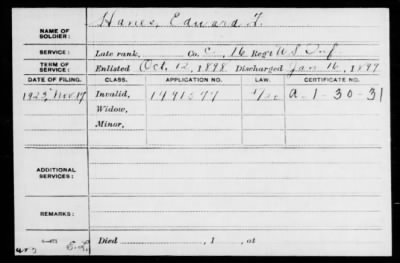 NAME OF SOLDIER: Hanes, Edward F.
SERVICE: Late rank, Co. C, 16 Reg't U S Inf
TERM OF SERVICE: Enlisted Oct. 12, 1898 Discharged Jan 16, 1899
DATE OF FILING. CLASS. APPLICATION NO. LAW. CERTIFICATE NO.
1925 Nov. 17 Invalid, 1491577 A-1-30-31
Widow,
Minor,
ADDITIONAL SERVICES:
REMARKS:
Died , 1 , at